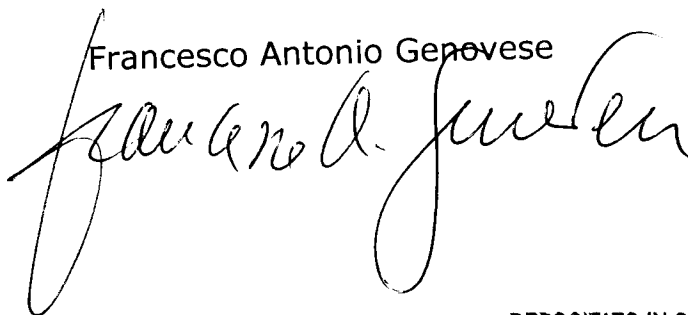 Francesco Antonio Genovese
Francesco A. Genovese